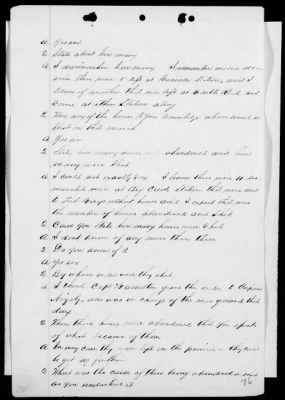 A. Yes sir
Q. State about how many
A. I disremember how many I remember on one occasion there were 4 left at Station, and I know of another that was left at and some at other Station along
Q. Were any of the horses to your knowledge abandoned or lost on this march
A. Yes sir
Q. State how many horses were abandoned and how many were shot
A. I could not exactly say I know there were 11 dismounted men at Big Creek Station that were sent to Fort Hays without horses and I expect that was the number of horses abandoned and shot
Q. Can you state how many horses were shot
A. I don't know of any more than three
Q. Do you know of 3
A. Yes sir
Q. By whose order was they shot
A. I think Capt Hamilton gave the order to who was in charge of the rear guard that day
Q. When these horses were abandoned that you speak of what became of them
A. In my case they were left on the prairie they could not go further
Q. What was the cause of their being abandoned or shot as you understood it
76